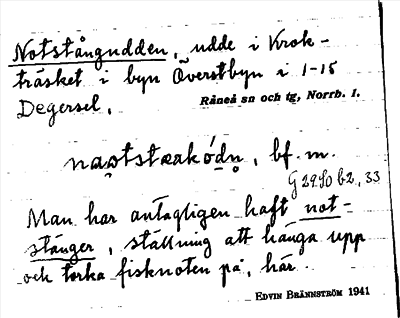 Notstångudden, udde i Krok-
träsket i byn Överstbyn i 1-15
Degersel.
Råneå sn och tg, Norrb. l.
bf. m.
G 2950 b2, 33
Man har antagligen haft not-
stänger, ställning att hänga upp
och torka fisknoten på, här.
EDVIN BRÄNNSTRÖM 1941